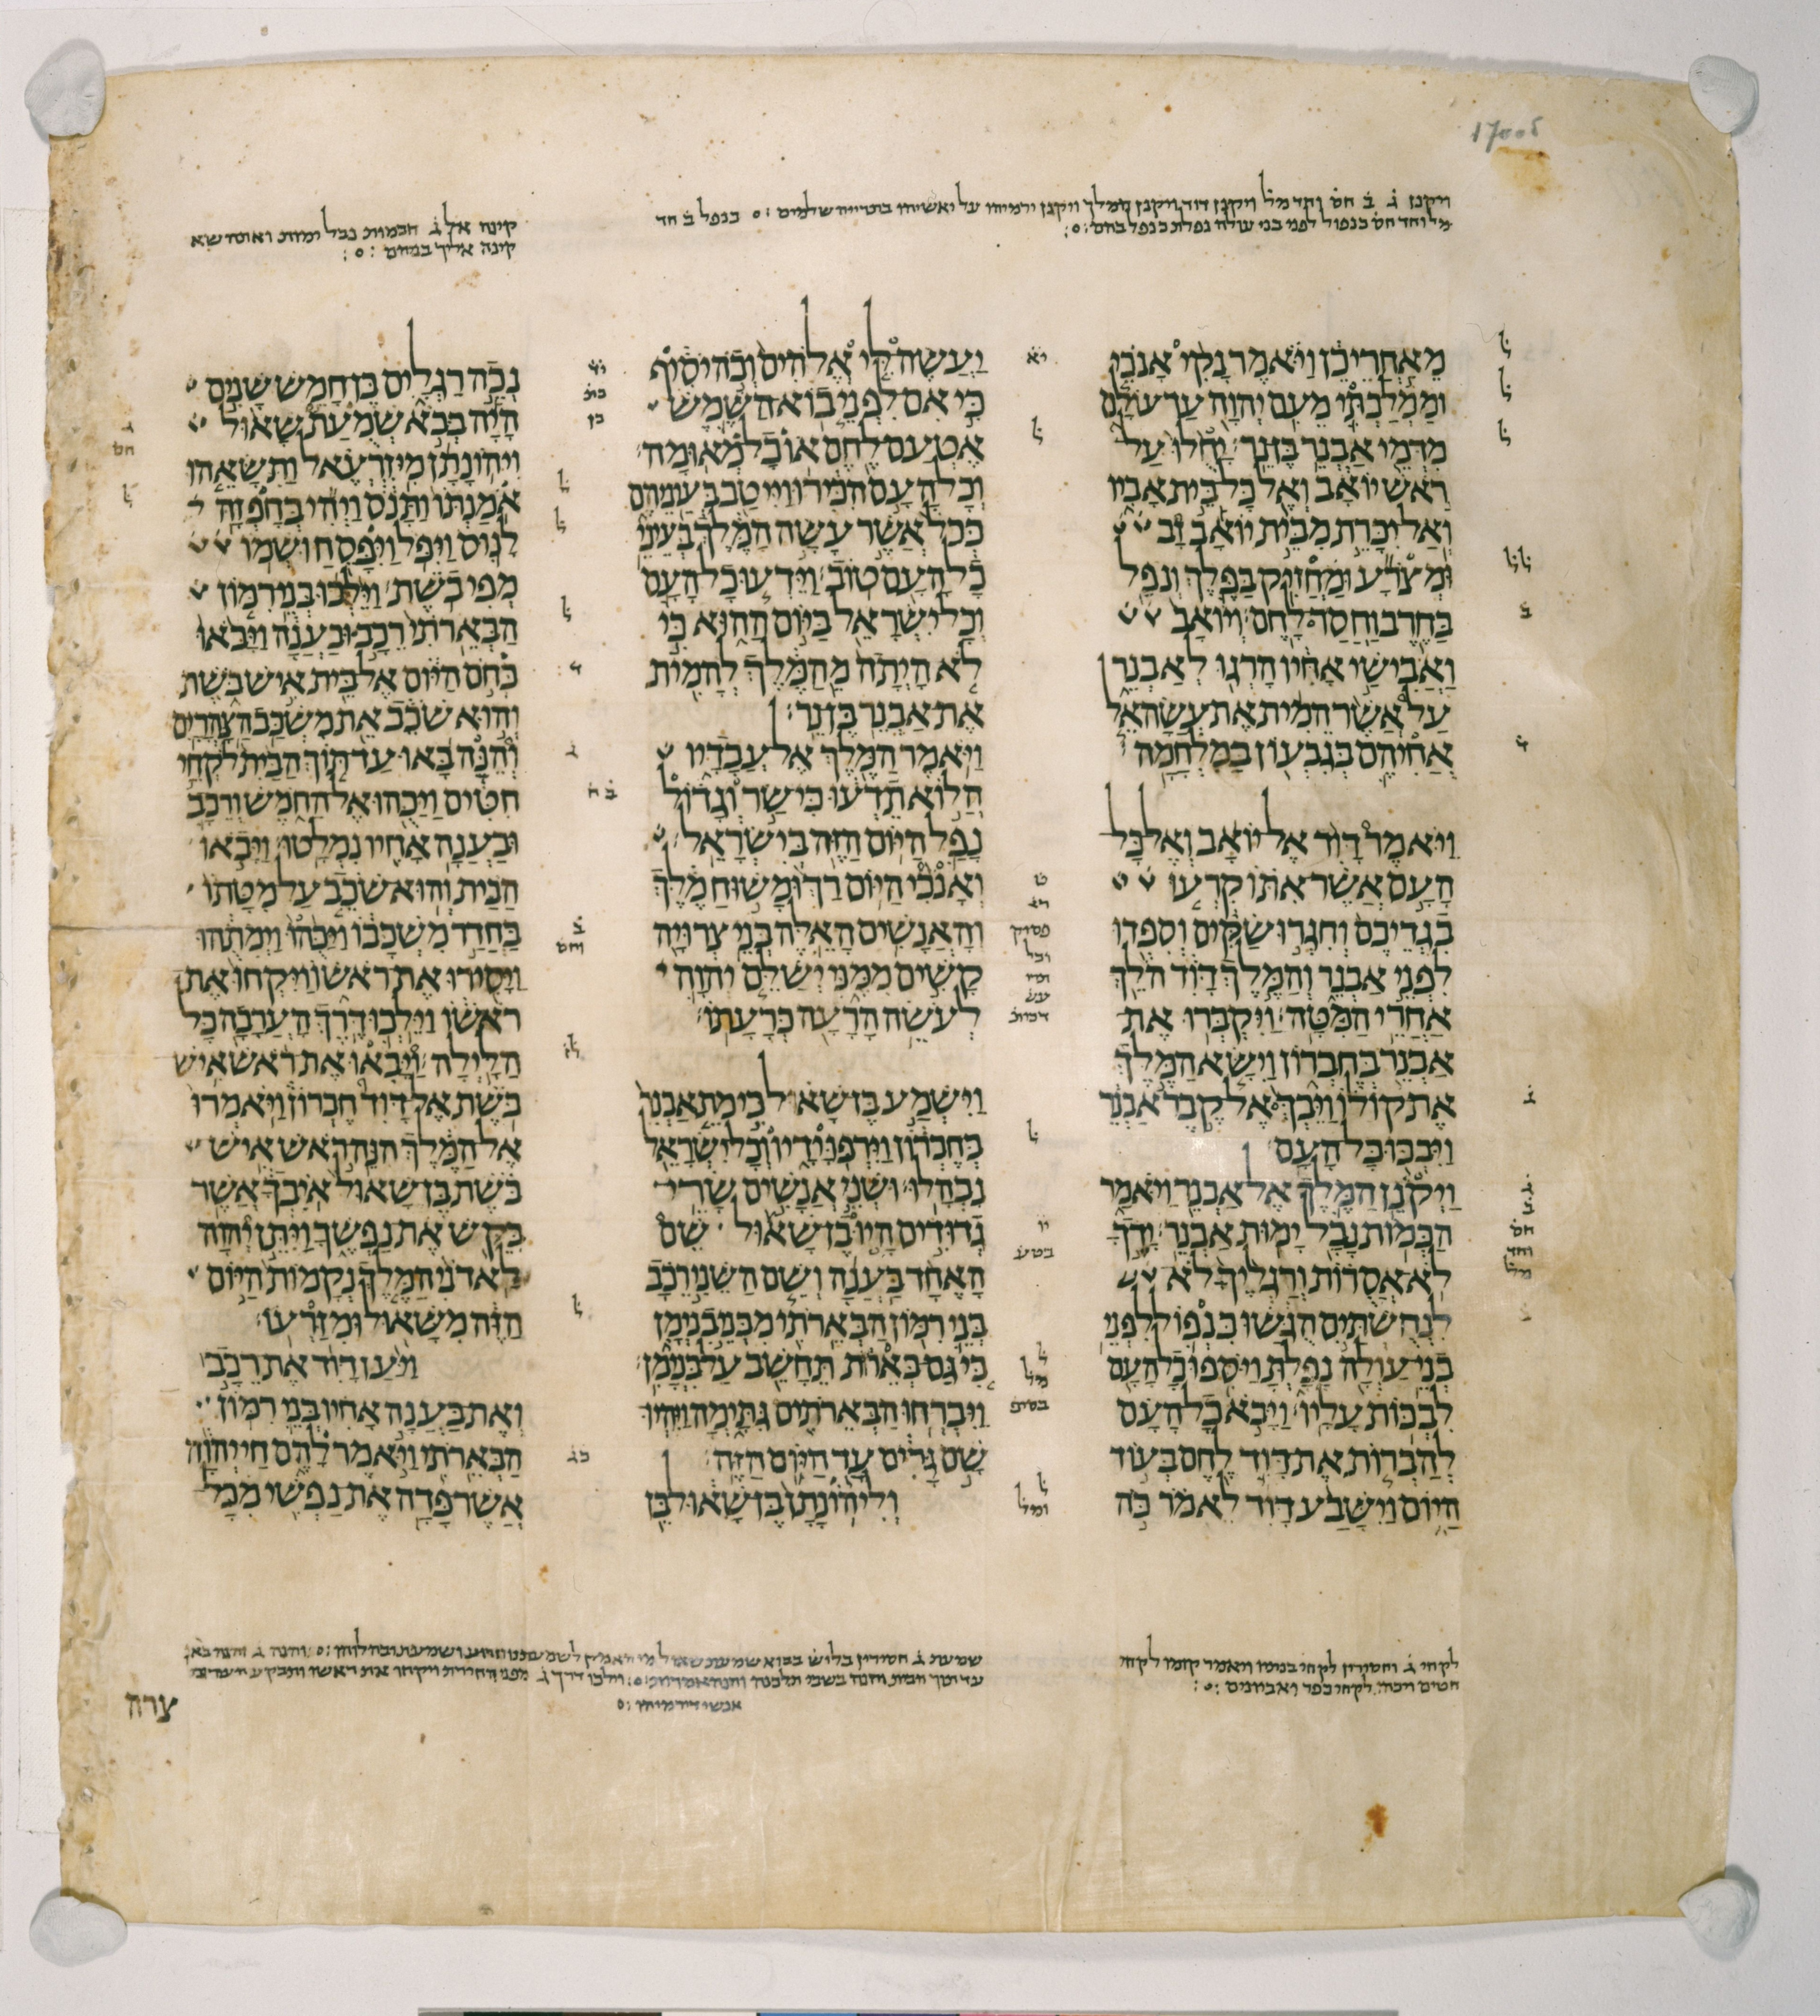 ויקנן ג ב חס וחד מל ויקונן דוד ויקנן המלך ויקונן ירמיהו על יאשיהו בתרייה שלמים בנפל ב חד
מל וחד חס כנפול לפני בני עולה נפלת בנפל בהם
קינה אל ג הכמות נבל ימות ואותה שא
קינה אליך במתים
מאחרי כן ויאמר נקי אנכי
וממלכתי מעם יהוה עד עולם
מדמי אבנר בן נר יחלו על
ראש יואב ואל כל בית אביו
ואל יכרת מבית יואב זב
ומצרע ומחזיק בפלך ונפל
בחרב וחסר לחם ויואב
ואבישי אחיו הרגו לאבנר
על אשר המית את עשהאל
אחיהם בגבעון במלחמה
ויאמר דוד אל יואב ואל כל
העם אשר אתו קרעו
בגדיכם וחגרו שקים וספדו
לפני אבנר והמלך דוד הלך
אחרי המטה ויקברו את
אבנר בחברון וישא המלך
את קולו ויבך אל קבר אבנר
ויבכו כל העם
ויקנן המלך אל אבנר ויאמר
הכמות נבל ימות אבנר ידך
לא אסרות ורגליך לא
לנחשתים הגשו כנפול לפני
בני עולה נפלת ויספו כל העם
לבכות עליו ויבא כל העם
להברות את דוד לחם בעוד
היום וישבע דוד לאמר כה
יעשה לי אלהים וכה יסיף
כי אם לפני בוא השמש
אטעם לחם או כל מאומה
וכל העם הכירו וייטב בעיניהם
ככל אשר עשה המלך בעיני
כל העם טוב וידעו כל העם
וכל ישראל ביום ההוא כי
לא היתה מהמלך להמית
את אבנר בן נר
ויאמר המלך אל עבדיו
הלוא תדעו כי שר וגדול
נפל היום הזה בישראל
ואנכי היום רך ומשוח מלך
והאנשים האלה בני צרויה
קשים ממני ישלם יהוה
לעשה הרעה כרעתו
וישמע בן שאול כי מת אבנר
בחברון וירפו ידיו וכל ישראל
נבהלו ושני אנשים שרי
גדודים היו בן שאול שם
האחד בענה ושם השני רכב
בני רמון הבארתי מבני בנימן
כי גם בארות תחשב על בנימן
ויברחו הבארתים גתימה ויהיו
שם גרים עד היום הזה
וליהונתן בן שאול בן
נכה רגלים בן חמש שנים
היה בבא שמעת שאול
ויהונתן מיזרעאל ותשאהו
אמנתו ותנס ויהי בחפזה
לנוס ויפל ויפסח ושמו
מפיבשת וילכו בני רמון
הבארתי רכב ובענה ויבאו
כחם היום אל בית איש בשת
והוא שכב את משכב הצהרים
והנה באו עד תוך הבית לקחי
חטים ויכהו אל החמש ורכב
ובענה אחיו נמלטו ויבאו
הבית והוא שכב על מטתו
בחדר משכבו ויכהו וימתהו
ויסירו את ראשו ויקחו את
ראשו וילכו דרך הערבה כל
הלילה ויבאו את ראש איש
בשת אל דוד חברון ויאמרו
אל המלך הנה ראש איש
בשת בן שאול איבך אשר
בקש את נפשך ויתן יהוה
לאדני המלך נקמות היום
הזה משאול ומזרעו
ויען דוד את רכב
ואת בענה אחיו בני רמון
הבארתי ויאמר להם חי יהוה
אשר פדה את נפשי מכל
לקחי ג וחסירין לקחי בנותיו ויאמר קומו לקחי
חטים ויכהו לקחי כפר ואביונים
עד תוך הבית והנה
אנשי
צרה